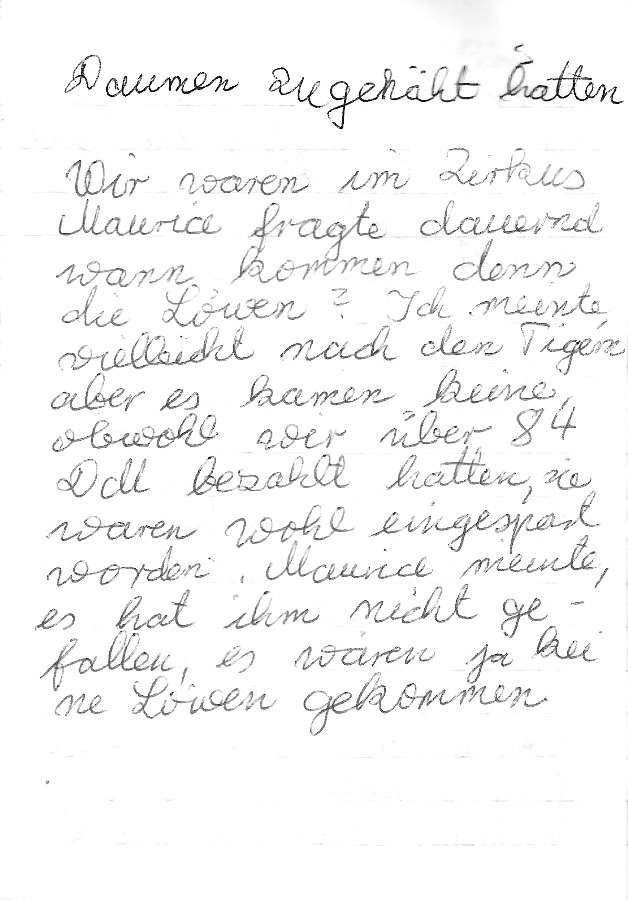 Daumen zugenäht hatten
Wir waren im Zirkus
Maurice fragte dauernd
wann kommen denn
die Löwen? Ich meinte,
vielleicht nach den Tigern
aber es kamen keine,
obwohl wir über 84
DM bezahlt hatten, sie
waren wohl eingespart
worden. Maurice meinte,
es hat ihm nicht ge-
fallen, es wären ja kei
ne Löwen gekommen